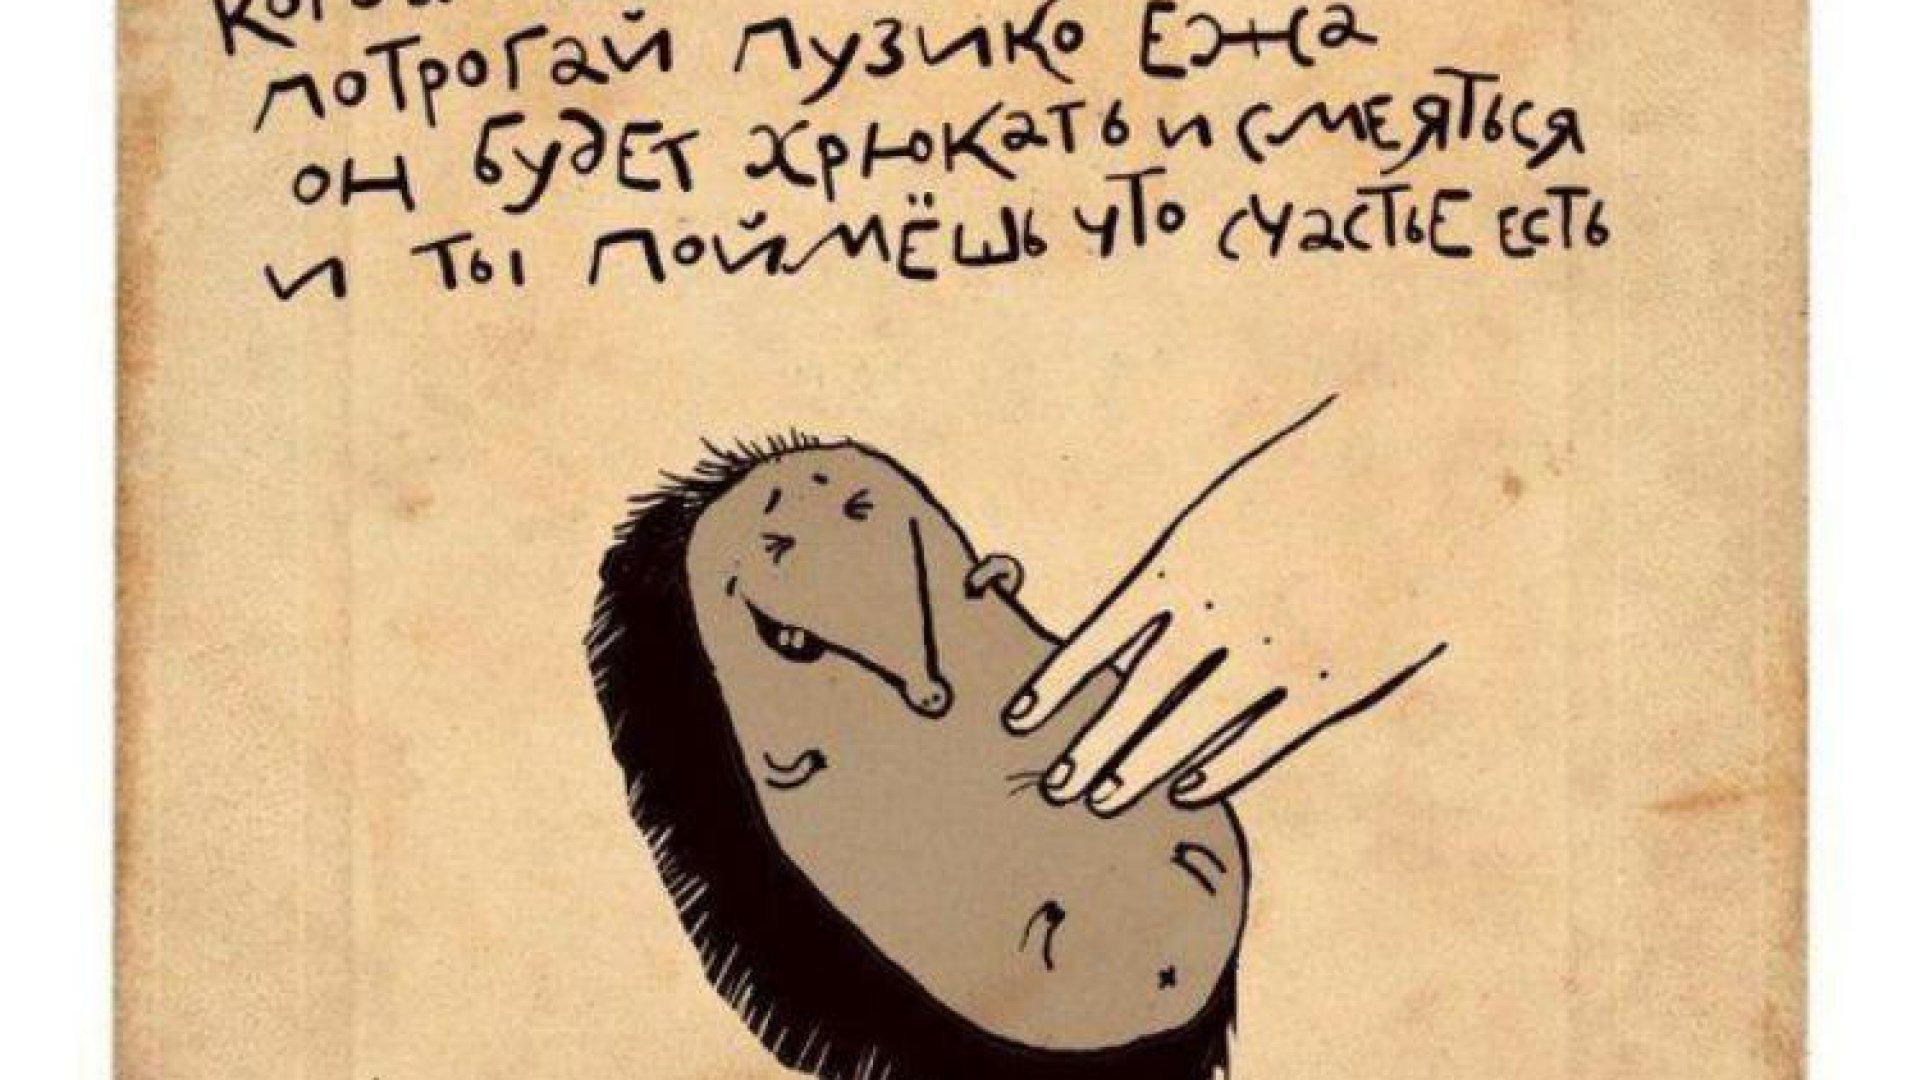 потрогай пузико ежа
он будет хрюкать и смеяться
и ты поймёшь что счастье есть